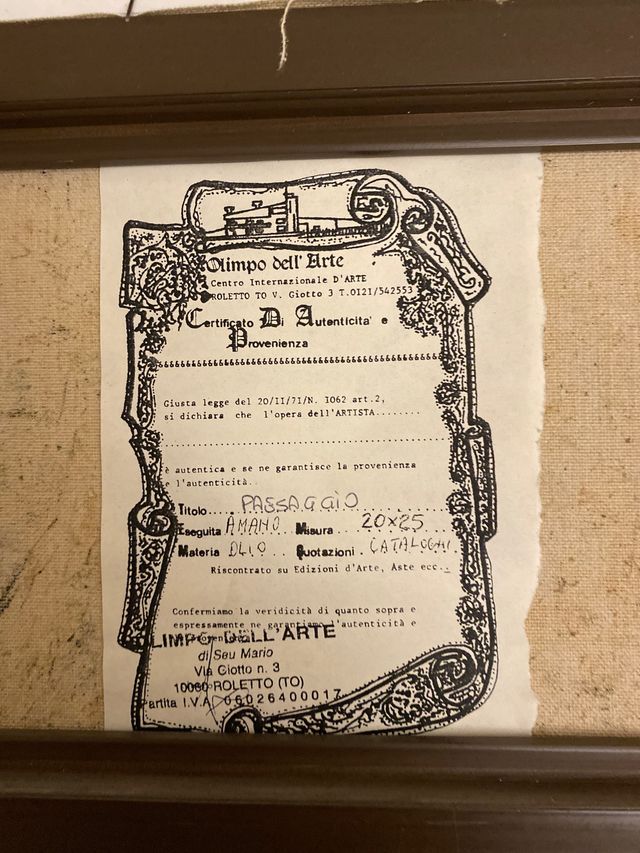 Olimpo dell' Arte
Centro Internazionale D'ARTE
ROLETTO TO V. Giotto 3 T.0121/542553
Certificato Di Autenticita' e
Provenienza
Giusta legge del 20/II/7I/N. I062 art.2,
si dichiara che l'opera dell'ARTISTA........
è autentica e se ne garantisce la provenienza
e l'autenticità..
Titolo.... PASSAGGIO
Eseguita AMANO .. Misura ... 20x25
Materia OLIO .. Quotazioni . CATALOGHI.
Riscontrato su Edizioni d'Arte, Aste ecc..
Confermiamo la veridicità di quanto sopra e
espressamente ne garantiamo l'autenticità e
LIMPO DELL'ARTE
di Seu Mario
Via Giotto n. 3
10060 ROLETTO (TO)
Partita I.V.A. 06026400017